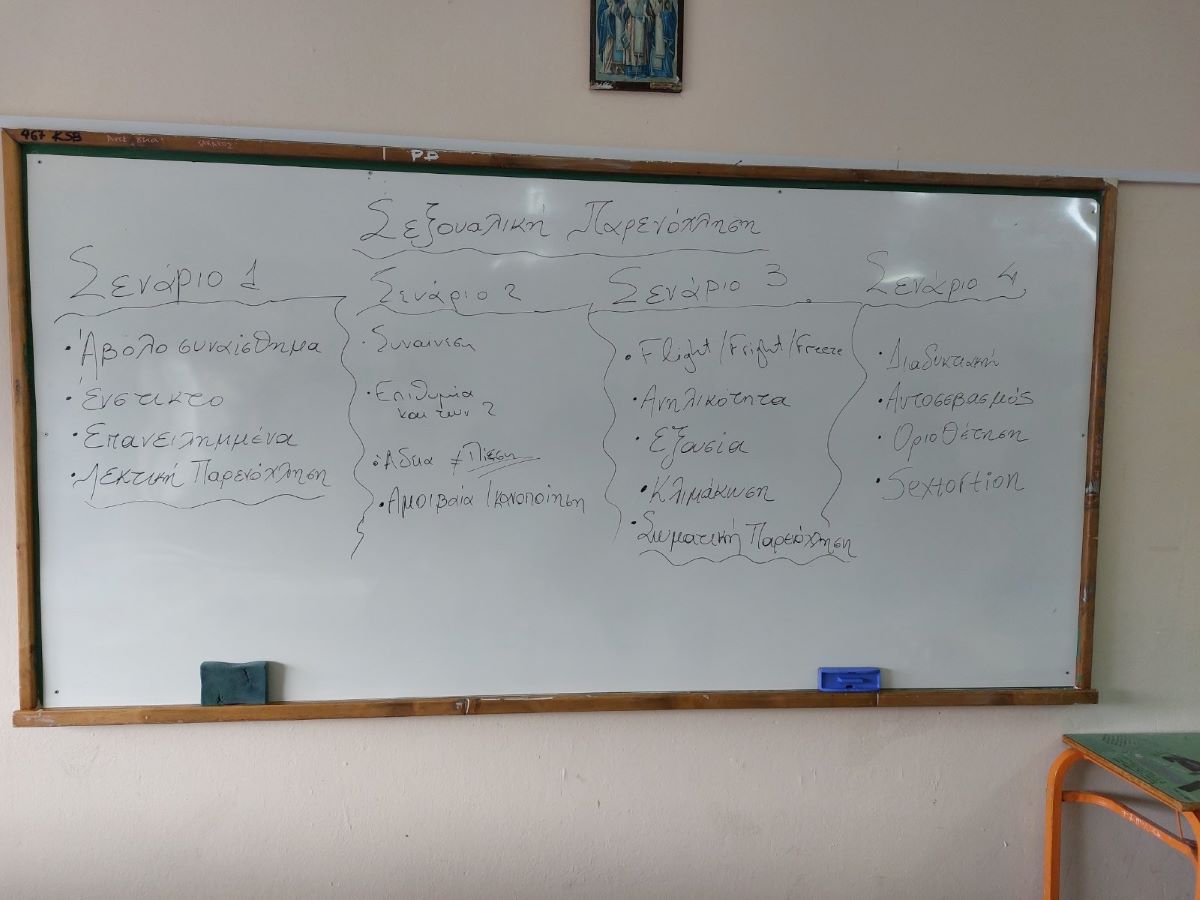 467 KSB
P.D
Σεξουαλική Παρενόχληση
Σενάριο 1
• Άβολο συναίσθημα
• Ένστικτο
• Επανειλημμένα
• Λεκτική Παρενόχληση
Σενάριο 2
• Συναίνεση
• Επιθυμία
και των 2
• Άδεια ≠ Πίεση
• Αμοιβαία Ικανοποίηση
Σενάριο 3
• Flight/Fright/Freeze
• Ανηλικότητα
• Εξουσία
• Κλιμάκωση
• Σωματική Παρενόχληση
Σενάριο 4
• Διαδυκτιακή
• Αυτοσεβασμός
• Οριοθέτηση
• Sextortion